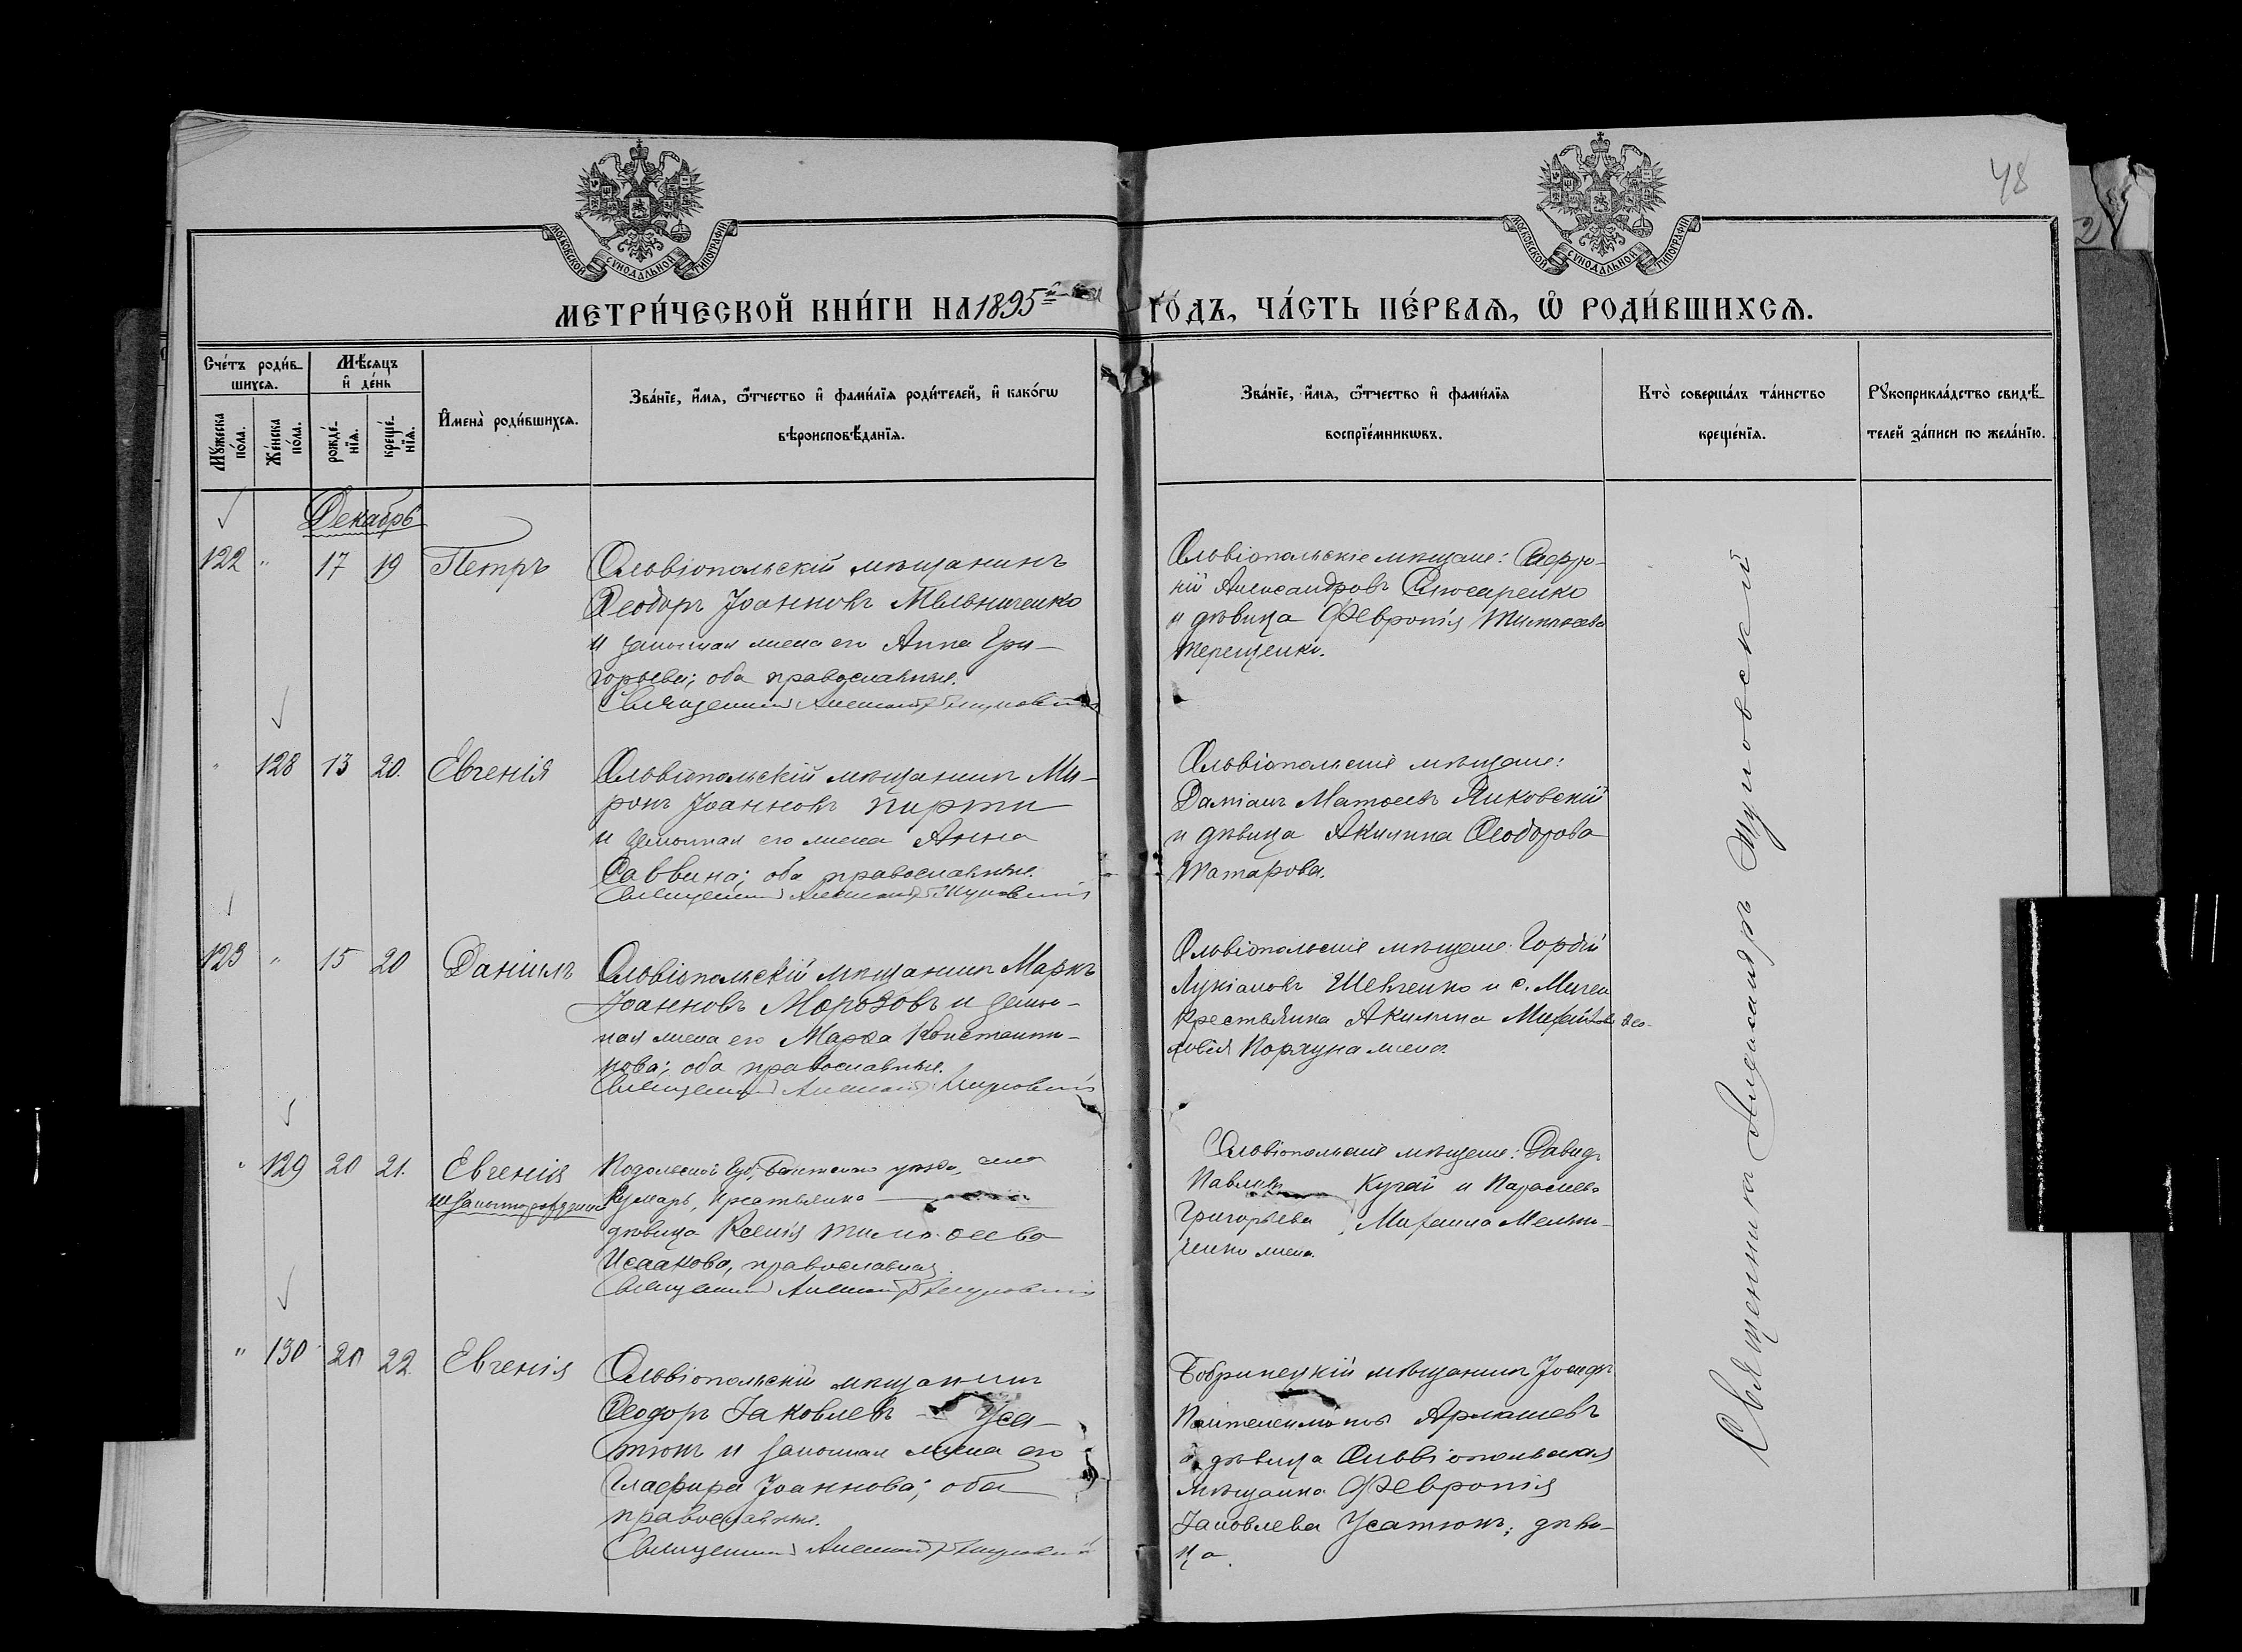 48
МОСКОВСКОЙ СѴНОДАЛЬНОЙ ТИПОГРАФІИ
МОСКОВСКОЙ СѴНОДАЛЬНОЙ ТИПОГРАФІИ
МЕТРИ́ЧЕСКОЙ КНИ́ГИ НА 1895й ГО́ДЪ, ЧА́СТЬ ПЕ́РВАѦ, Ѽ РОДИ́ВШИХСѦ.
Сче́тъ роди́в-
шихсѧ.
Мѣ́сѧцъ
и҆ де́нь
Мꙋ́жеска
по́ла.
Же́нска
по́ла.
рожде́-
нїѧ.
креще́-
нїѧ.
И҆мена̀ роди́вшихсѧ.
Зва́нїе, и҆́мѧ, ѻ҆́тчество и҆ фами́лїѧ роди́телей, и҆ како́гѡ
вѣроисповѣ́данїѧ.
Зва́нїе, и҆́мѧ, ѻ҆́тчество и҆ фами́лїѧ
воспрїе́мникѡвъ.
Кто̀ соверша́лъ та́инство
креще́нїѧ.
Рꙋкоприкла́дство свидѣ́-
телей за́писи по жела́нїю.
Декабрь
122 " 17 19 Петръ
Ольвіопольскій мѣщанинъ
Ѳеодоръ Іоанновъ Мельниченко
и законная жена его Анна Гри-
горьева; оба православные.
Священникъ Александръ Жуковскій
Ольвіопольскіе мѣщане: Софро-
ній Александровъ Слюсаренко
и дѣвица Февронія Тимоѳеева
Терещенко.
" 128 13 20. Евгенія
Ольвіопольскій мѣщанинъ Ми-
ронъ Іоанновъ Пирти
и законная его жена Анна
Саввина; оба православные.
Священникъ Александръ Жуковскій
Ольвіопольскіе мѣщане:
Даміанъ Матѳеевъ Яковскій
и дѣвица Акилина Ѳеодорова
Татарова.
123 " 15 20 Даніилъ
Ольвіопольскій мѣщанинъ Маркъ
Іоанновъ Морозовъ и закон-
ная жена его Марѳа Константи-
нова; оба православные.
Священникъ Александръ Жуковскій
Ольвіопольскіе мѣщане: Гордій
Лукіановъ Шевченко и с. Мигеи
крестьянка Акилина Михайлова
жена.
" 129 20 21. Евгенія
незаконнорожденная
Подольской губ., Балтскаго уѣзда, села
крестьянка
дѣвица Ксенія Тимоѳеева
Исаакова, православная
Священникъ Александръ Жуковскій
Ольвіопольскіе мѣщане: Давидъ
Павловъ Кугай и Параскева
Григорьева, Михаила Мельни-
ченко жена.
" 130 20 22. Евгенія
Ольвіопольскій мѣщанинъ
Ѳеодоръ Іаковлевъ Уса-
тюкъ и законная жена его
Глафира Іоаннова; оба
православные.
Священникъ Александръ Жуковскій
Бобринецкій мѣщанинъ Іосифъ
Пантелеимоновъ Армашевъ
и дѣвица Ольвіопольская
мѣщанка Февронія
Іаковлева Усатюкъ, дѣви-
ца.
Священникъ Александръ Жуковскій